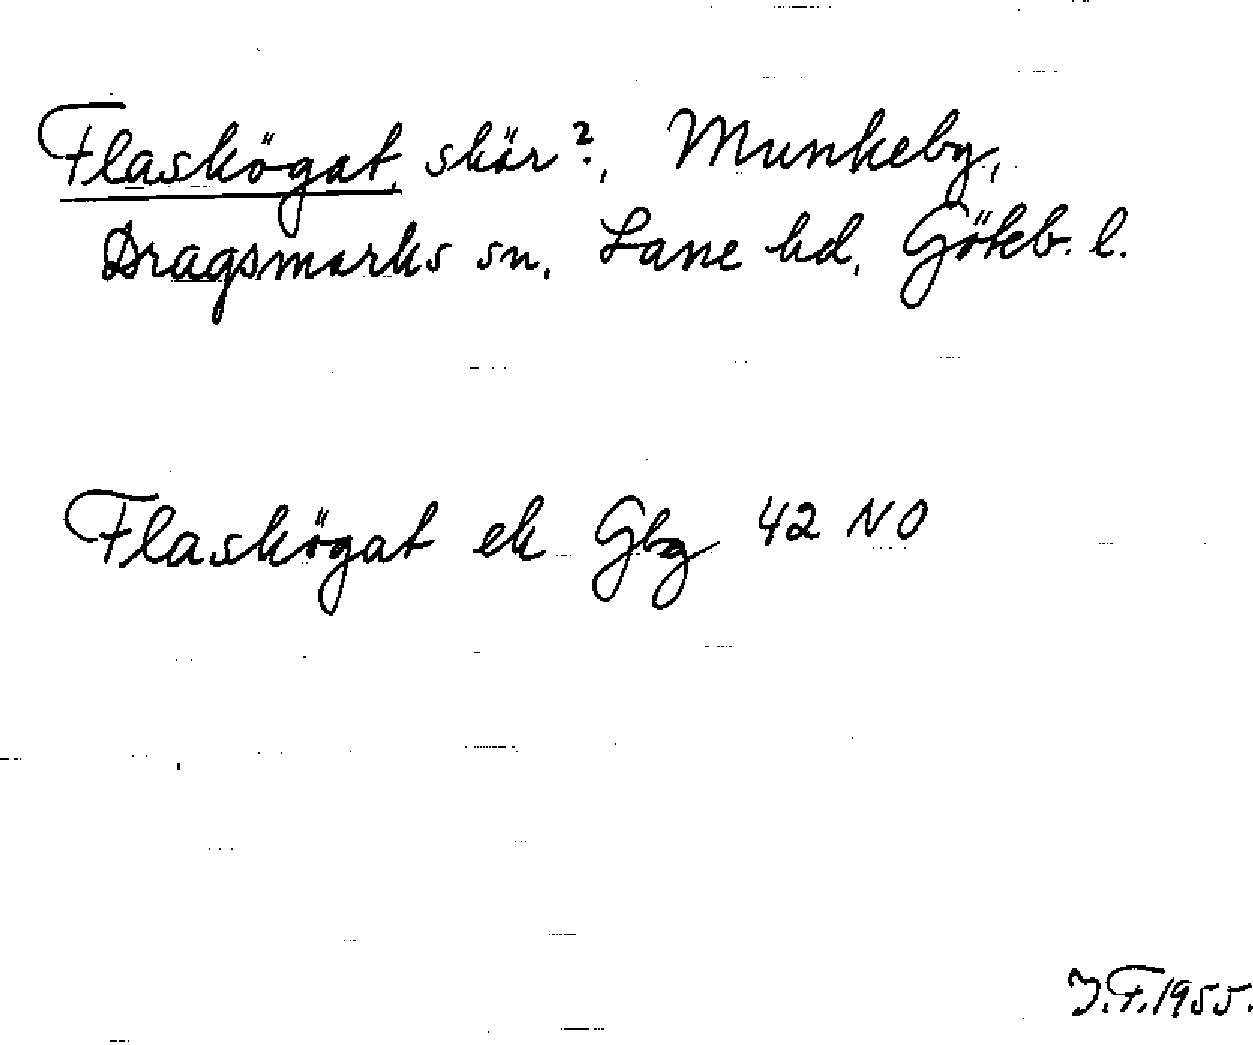 Flaskögat, skär?, Munkeby,
Dragsmarks sn, Lane hd, Göteb. l.
Flaskögat ek Gbg 42 NO
J.F.1955.